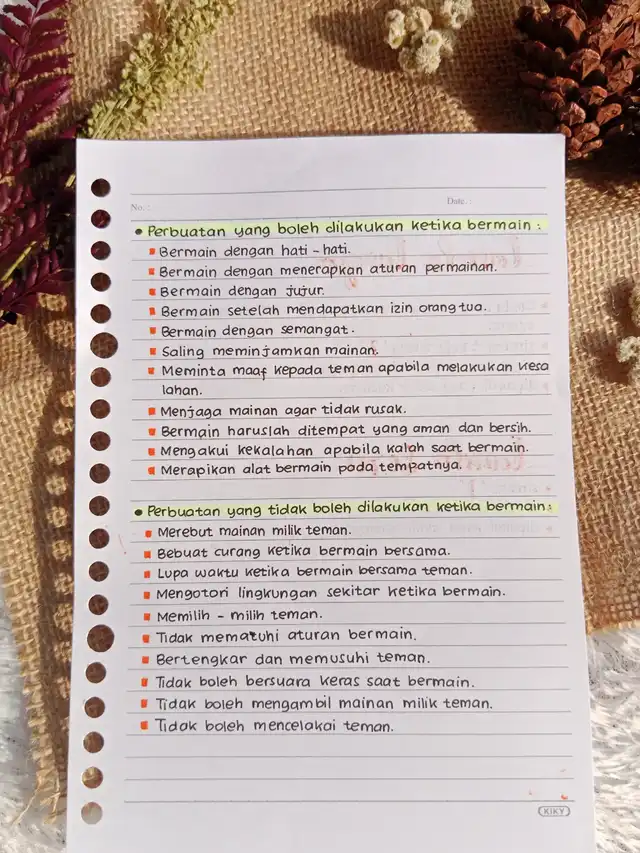 No. :
Date. :
• Perbuatan yang boleh dilakukan ketika bermain :
Bermain dengan hati - hati.
Bermain dengan menerapkan aturan permainan.
Bermain dengan jujur.
Bermain setelah mendapatkan izin orang tua.
Bermain dengan semangat.
Saling meminjamkan mainan.
Meminta maaf kepada teman apabila melakukan kesa
lahan.
Menjaga mainan agar tidak rusak.
Bermain haruslah ditempat yang aman dan bersih.
Mengakui kekalahan apabila kalah saat bermain.
Merapikan alat bermain pada tempatnya.
• Perbuatan yang tidak boleh dilakukan ketika bermain :
Merebut mainan milik teman.
Bebuat curang ketika bermain bersama.
Lupa waktu ketika bermain bersama teman.
Mengotori lingkungan sekitar ketika bermain.
Memilih - milih teman.
Tidak mematuhi aturan bermain.
Bertengkar dan memusuhi teman.
Tidak boleh bersuara keras saat bermain.
Tidak boleh mengambil mainan milik teman.
Tidak boleh mencelakai teman.
KIKY